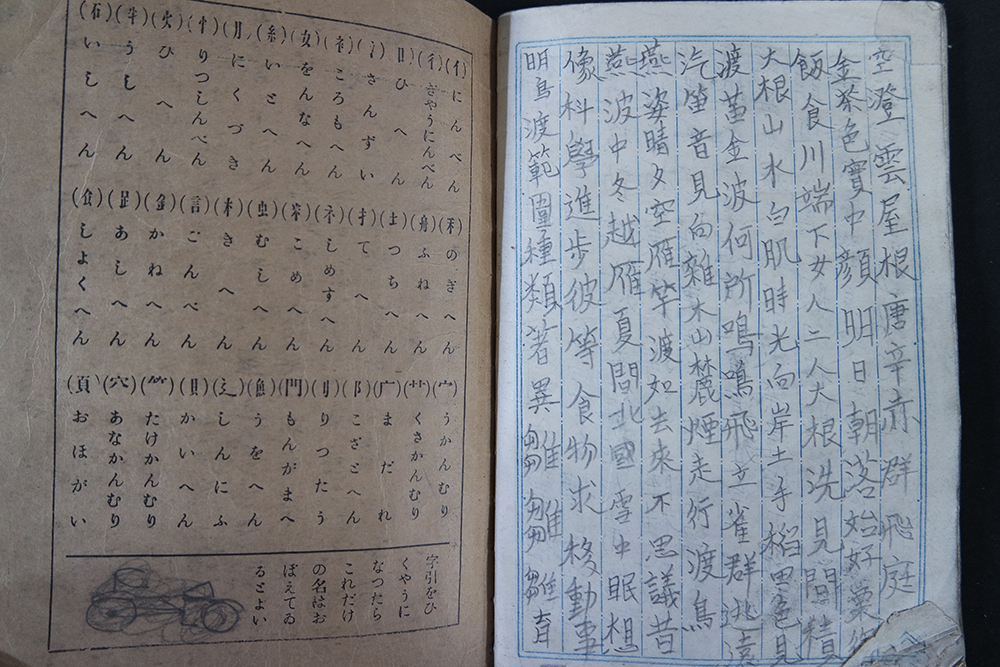 空澄雲屋根唐辛赤群飛庭
金茶色實中顔明日朝落始好粟
飯食川端下女人二人大根洗見間積
大根山水白肌時光向岸土手稻田色見
渡畄金波何所鳴鳴飛立雀群逃遠
汽笛音見向雜木山麓煙走行渡鳥
燕姿晴夕空雁竿渡如去來不思議昔
燕波中冬越雁夏間北國雪中眠想
像科學進步彼等食物求移動事
明鳥渡範圍種類著異雛雛雛雛育
(亻)にんべん
(彳)ぎやうにんべん
(日)ひへん
(氵)さんずい
(衤)ころもへん
(女)をんなへん
(糸)いとへん
(月)にくづき
(忄)りつしんべん
(火)ひへん
(牛)うしへん
(石)いしへん
(禾)のぎへん
(舟)ふねへん
(土)つちへん
(扌)てへん
(礻)しめすへん
(米)こめへん
(虫)むしへん
(木)きへん
(言)ごんべん
(金)かねへん
(足)あしへん
(食)しよくへん
(宀)うかんむり
(艹)くさかんむり
(广)まだれ
(阝)こざとへん
(刂)りつたう
(門)もんがまへ
(魚)うをへん
(辶)しんにふ
(貝)かいへん
(竹)たけかんむり
(穴)あなかんむり
(頁)おほがい
字引をひ
くやうに
なつたら
これだけ
の名はお
ぼえてゐ
るとよい